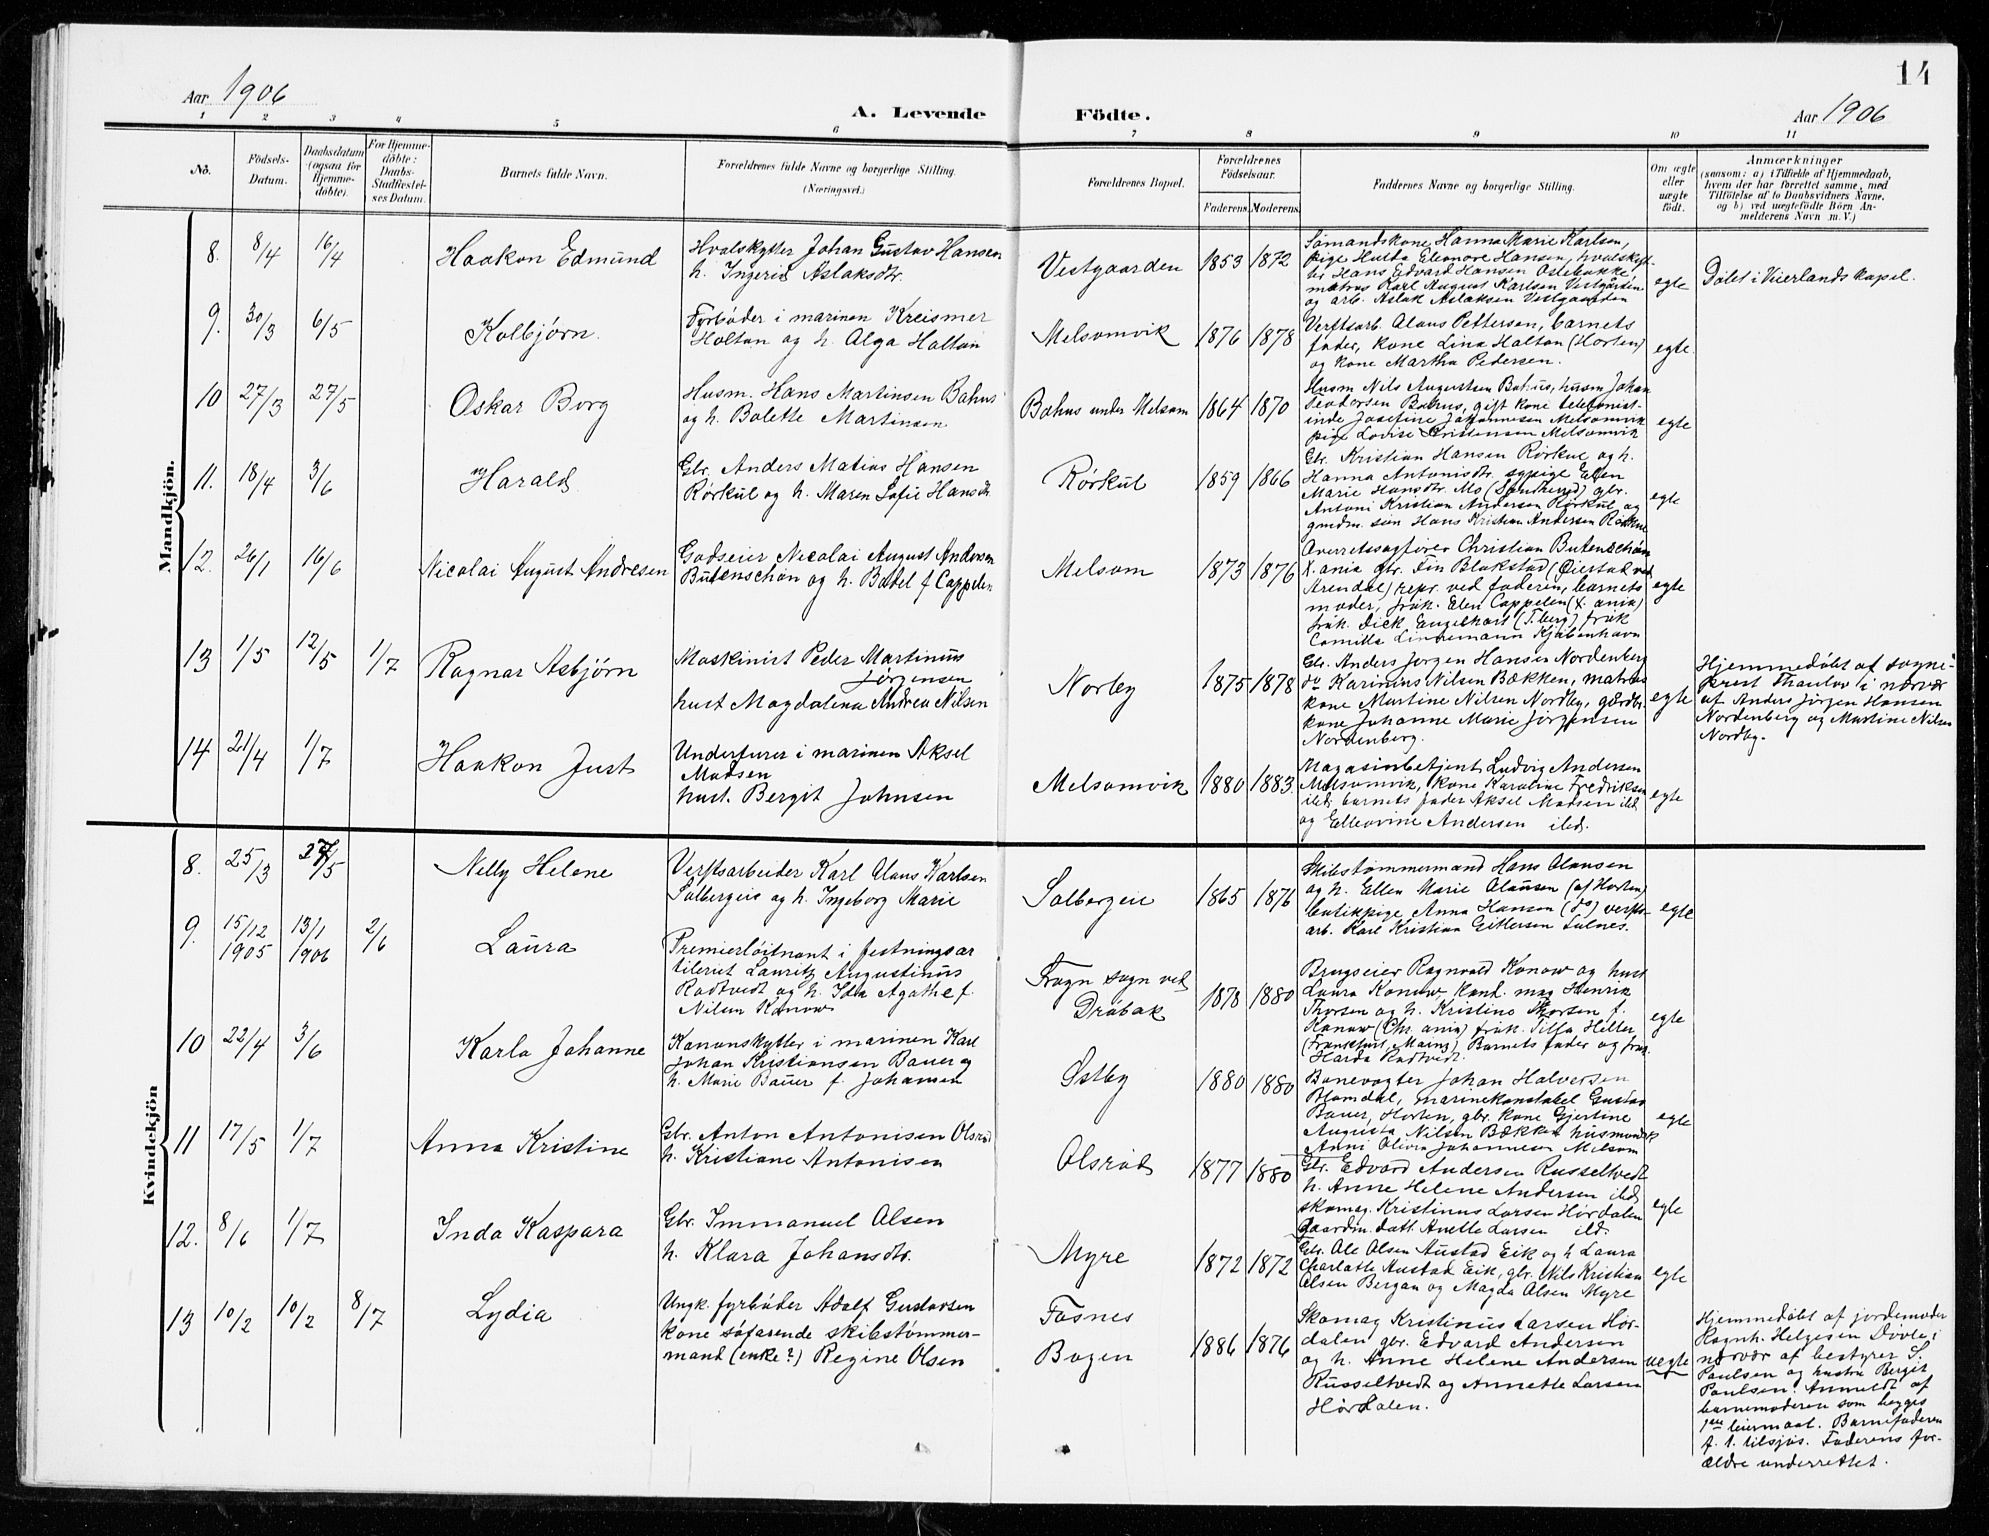 14
Aar 1906
A. Levende Födte.
Aar 1906
1 2 3 4 5 6 7 8 9 10 11
No.
Födsels-Datum.
Daabsdatum (ogsaa for Hjemme-döbte).
For Hjemme-döbte: Daabs-Stadfæstel-ses Datum.
Barnets fulde Navn.
Forældrenes fulde Navne og borgerlige Stilling. (Næringsvei.)
Forældrenes Bopæl.
Forældrenes Födselsaar.
Faderens. Moderens.
Faddernes Navne og borgerlige Stilling.
Om ægte eller uægte födt.
Anmærkninger
(saasom: a) i Tilfælde af Hjemmedaab,
hvem der har forrettet samme, med
Tilföielse af to Daabsvidners Navne,
og b) ved uægtefödte Börn An-
melderens Navn m. V.)
Mandkjön.
8. 8/4 16/4 Haakon Edmund
Hvalskytter Johan Gustav Hansen
h. Ingerid Aslaksdtr.
Vestgaarden 1853 1872
Sømandskone Hanna Marie Karlsen,
pige Hulda Eleonore Hansen, hvalskyt-
ter Hans Edvard Hansen Ostebakke,
matros Karl August Karlsen Vestgården
og arb. Aslak Aslaksen Vestgaarden
egte
Døbt i Veierlands kapel.
9. 30/3 6/5 Kolbjørn.
Fyrbøder i marinen Kreismer
Holtan og h. Alga Holtan
Melsomvik 1876 1878
Verftsarb. Olaus Pettersen, barnets
fader, kone Lina Holtan (Horten)
og kone Martha Pedersen.
egte.
10 27/3 27/5 Oskar Borg
Husm. Hans Martinsen Bahus
og h. Bolette Martinsen
Bahus under Melsom 1864 1870
Husm Nils Augustsen Bahus, husm Johan
Teodorsen Bahus, gift kone telefonist-
inde Josefine Johannesen Melsomvik
pige Lovise Kristensen Melsomvik
egte
11. 18/4 3/6 Harald
Gbr. Anders Matias Hansen
Rørkul og h. Maren Sofie Hansdtr.
Rørkul 1859 1866
Gbr. Kristian Hansen Rørkul og h.
Hanna Antonisdtr. sypige Ellen
Marie Hansdtr. Mo (Sandherred) gbr.
Antoni Kristian Andersen Rørkul og
gmdm. søn Hans Kristian Andersen Rørkul
egte
12. 26/1 16/6 Nicolai August Andresen
Godseier Nicolai August Andresen
Butenschøn og h. Bodel f Cappelen
Melsom 1873 1876
Overretssagfører Christian Butenschøn
X.ania gbr. Fin Blakstad (Øiestad ved
Arendal) repr. ved faderen, barnets
moder, frøk. Elen Cappelen (X.ania)
frøk. Dick Engelhart (T.berg) frøk
Camilla Linnemann Kjøbenhavn
egte
13 1/5 12/5 1/7 Ragnar Asbjørn
Maskinist Peder Martinus
Jørgensen
hust Magdalena Andrea Nilsen
Norby 1875 1878
Gbr. Anders Jørgen Hansen Nordenberg
do Karinius Nilsen Bækken, matros
kone Martine Nilsen Nordby, gårdbr.
kone Johanne Marie Jørgensen
Nordenberg.
egte
Hjemmedøbt af sogne-
prest Thaulow i nærvær
af Anders Jørgen Hansen
Nordenberg og Martine Nilsen
Nordby.
14 21/4 1/7 Haakon Just
Underfurer i marinen Aksel
Madsen
hust. Bergit Johnsen
Melsomvik 1880 1883.
Magasinbetjent Ludvig Andersen
Melsomvik, kone Karoline Fredriksen
ibd. barnets fader Aksel Madsen ibd
og Elleovine Andersen ibd.
egte
Kvindekjön
8. 25/3 27/5 Nelly Helene
Verftsarbeider Karl Olaus Karlsen
Solbergeie og h. Ingeborg Marie
Solbergeie 1865 1876
Skibstømmermand Hans Olausen
og h. Ellen Marie Olausen (af Horten)
butikpige Anna Hansen (do) verfts-
arb. Karl Kristian Gittersen Sulnes.
egte
9. 15/12 1905 13/1 1906 2/6 Laura
Premierløitnant i festningsar
tileriet Lauritz Augustinus
Rødtvedt og h. Ida Agathe f.
Nilsen Konow
Frogn sogn ved
Drøbak 1878 1880
Brugseier Ragnvald Konow og hust
Laura Konow, kand. mag Henrik
Thorsen og h. Kristine Thorsen f.
Konow (Chr.ania) frøk. Tilla Hiller
(Frankfurt, Mainz) Barnets fader og frøk.
Harda Rødtvedt.
egte
10 22/4 3/6 Karla Johanne
Kanonskytter i marinen Karl
Johan Kristiansen Bauer og
h. Marie Bauer f. Johansen
Østby 1880 1880
Banevogter Johan Halvorsen
Blomdal, marinekonstabel Gustav
Bauer, Horten, gbr. kone Gjertine
Augusta Nilsen Bækken husmandsk
Anni Olivia Johannesen Melsom
egte
11 17/5 1/7 Anna Kristine
Gbr. Anton Antonisen Olsrød
h. Kristiane Antonisen
Olsrød 1877 1880
Gbr. Edvard Andersen Russeltvedt
h. Anne Helene Andersen ibd
skomag. Kristinus Larsen Hørdalen
gaardm. datt. Anette Larsen ibd.
egte
12. 8/6 1/7 Inda Kaspara
Gbr. Immanuel Olsen
h. Klara Johansdtr.
Myre 1872 1872
Gbr. Ole Olsen Austad Eik og h Laura
Charlotte Austad Eik, gbr. Nils Kristian
Olsen Bergan og Magda Olsen Myre
egte
13 10/2 10/2 8/7 Lydia
Ungk. fyrbøder Adolf Gustavsen
kone søfarende skibstømmer-
mand (enke?) Regine Olsen
Fosnes
Bogen 1886 1876
Skomag Kristinus Larsen Hør-
dalen gbr. Edvard Andersen
og h. Anne Helene Andersen
Russeltvedt og Annette Larsen
Hørdalen.
uegte
Hjemmedøbt af jordemoder
Ragnh. Helgesen Dvole i
nærvær af bestyrer S.
Paulsen og hustru Bergit
Paulsen. Anmeldt af
barnemoderen som begges
1ste leiermaal. Barnefaderen
f. t. tilsjøs. Faderens for-
ældre underrettet.